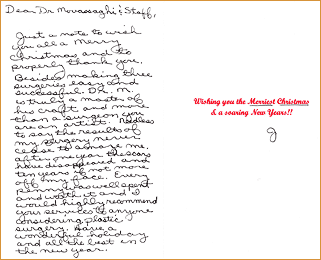 Dear Dr Movassaghi & Staff,
Just a note to wish
you all a Merry
Christmas and to
properly thank you.
Besides making three
surgeries easy and
successful, DR. M.
is truly a master of
his craft and more
than a surgeon you
are an artist. Needless
to say the results of
my surgery never
cease to amaze me.
after one year the scars
have disappeared and
ten years if not more
off my face. Every
penny was well spent
and worth it and I
would highly recommend
your services to anyone
considering plastic
surgery. Have a
wonderful holiday
and all the best in
the new year.
Wishing you the Merriest Christmas
& a soaring New Years!!